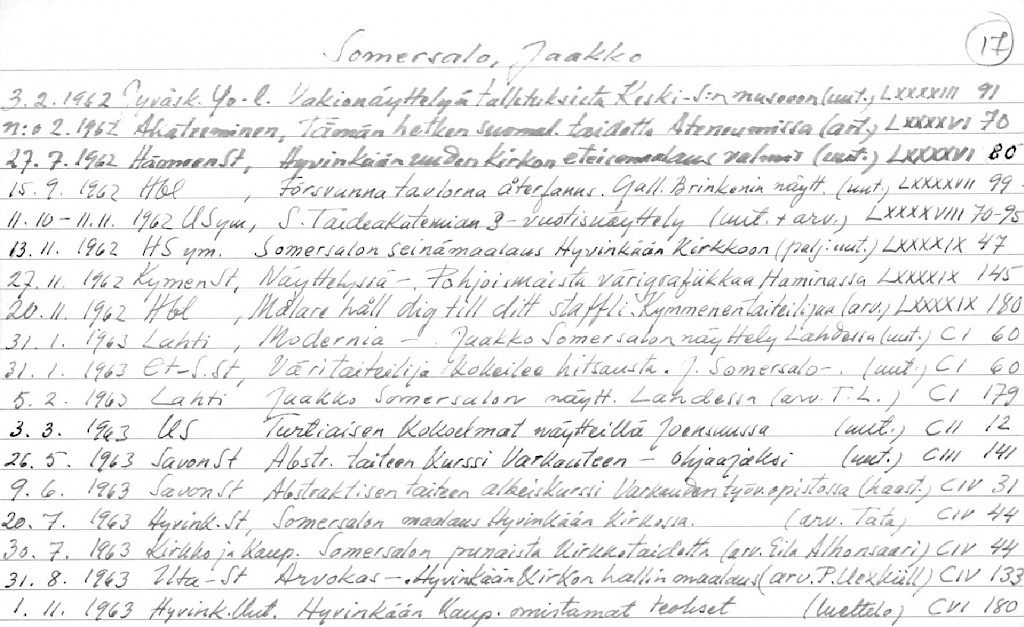 17
Somersalo, Jaakko
3.2.1962 Jyväsk. Yo-l. Vakionäyttelyä talletuksista Keski-S:n museoon (uut.) LXXXXIII 91
n:o 2.1962 Ahätuominen, Tämän hetken suomal. taidetta Ateneumissa (art.) LXXXXVI 70
27.7.1962 HämeenSt, Hyvinkään uuden kirkon eteismaalaus valmis (uut.) LXXXXVI 80
15.9.1962 Hbl, Försvunna tavlorna återfanns. Gall. Brinkenin näytt. (uut.) LXXXXVII 99
11.10-11.11.1962 USym, S. Taideakatemian 3-vuotisnäyttely (uut. + arv.) LXXXXVIII 70-95
13.11.1962 HS ym. Somersalon seinämaalaus Hyvinkään kirkkoon (palj. uut.) LXXXXIX 47
27.11.1962 KymenSt, Näyttelyssä -. Pohjoismaista värigrafiikkaa Haminassa LXXXXIX 145
20.11.1962 Hbl, Målare håll dig till ditt staffli. Kymmenen taiteilijaa (arv.) LXXXXIX 180
31.1.1963 Lahti, Modernia -. Jaakko Somersalon näyttely Lahdessa (uut.) CI 60
31.1.1963 Et-S.St, Väritaiteilija kokeilee hitsausta. J. Somersalo-. (uut.) CI 60
5.2.1963 Lahti Jaakko Somersalon näytt. Lahdessa (arv. T.L.) CI 179
3.3.1963 US Turtiaisen kokoelmat näytteillä Joensuussa (uut.) CII 12
26.5.1963 SavonSt Abstr. taiteen kurssi Varkauteen - ohjaajaksi (uut.) CIII 141
9.6.1963 SavonSt Abstraktisen taiteen alkeiskurssi Varkauden työv.opistossa (haast.) CIV 31
20.7.1963 Hyvink.St, Somersalon maalaus Hyvinkään kirkossa. (arv. Tata) CIV 44
30.7.1963 Kirkko ja Kaup. Somersalon punaista kirkkotaidetta (arv. Eila Alhonsaari) CIV 44
31.8.1963 Uta-St Arvokas -. Hyvinkään kirkon hallin maalaus (arv. P. Uexküll) CIV 133
1.11.1963 Hyvink.Uut. Hyvinkään Kaup. omistamat teokset (luettelo) CVI 180